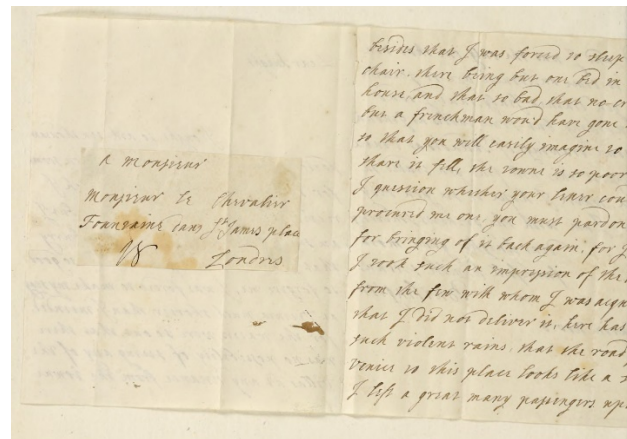 A Monsieur
Monsieur Le Chevalier
Fountaine dans St James place
Londres
besides that I was forced to sleep
chair, there being but one bed in
house, and that so bad, that no cr
but a frenchman wou'd have gone
so that you will easily imagine to
share it fell, the towne is so poor
I question whether your letter cou
procured me one, you must pardon
for bringing of it back again, for
I took such an impression of the
from the few with whom I was acqu
that I did not deliver it, here has
such violent rains, that the road
Venice to this place looks like a
I left a great many passengers up